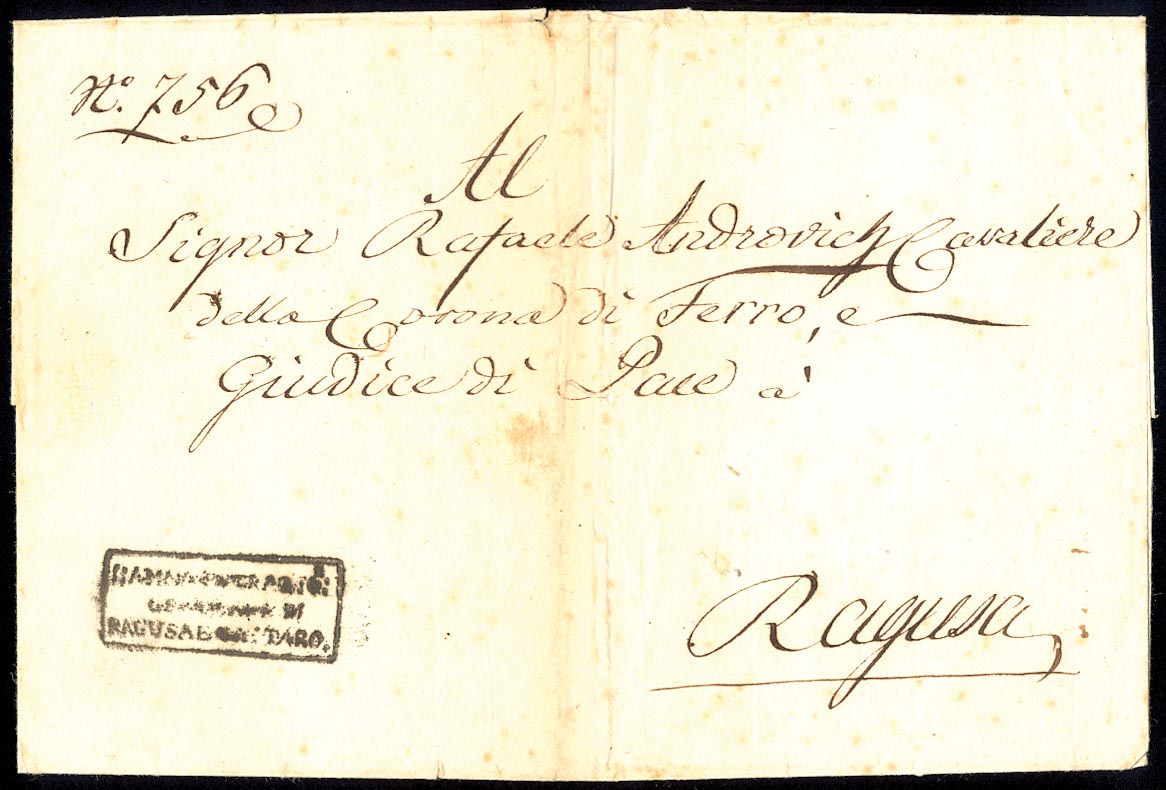 N.º 756
Al
Signor Rafaele Androvich Cavaliere
della Corona di Ferro, e
Giudice di Pace à
Ragusa
DI
RAGUSA E CATTARO.